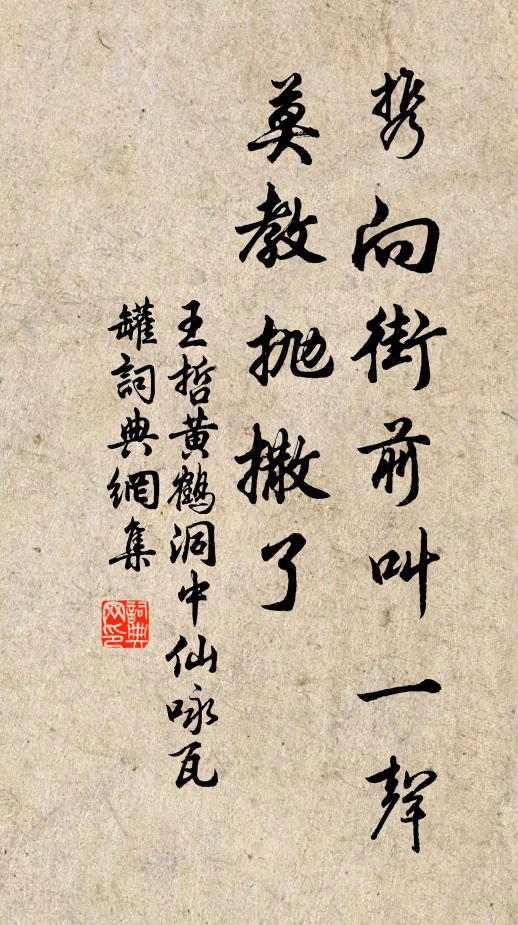 携向街前叫一聲
莫教抛撒了
王哲黄鶴洞中仙咏瓦
罐詞典網集
詞典网印